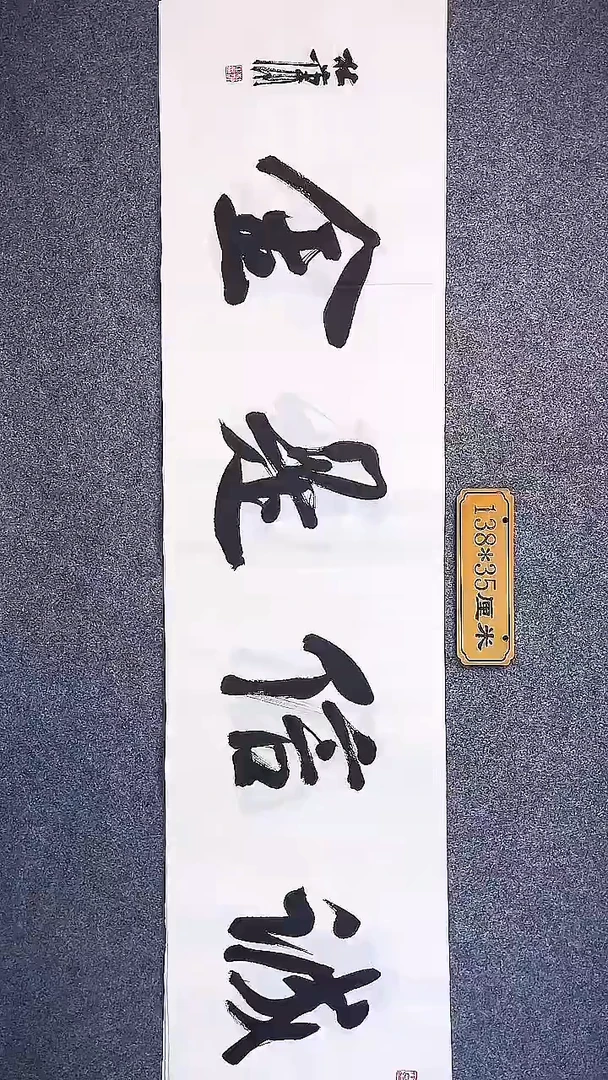 诚信是金
138*35厘米